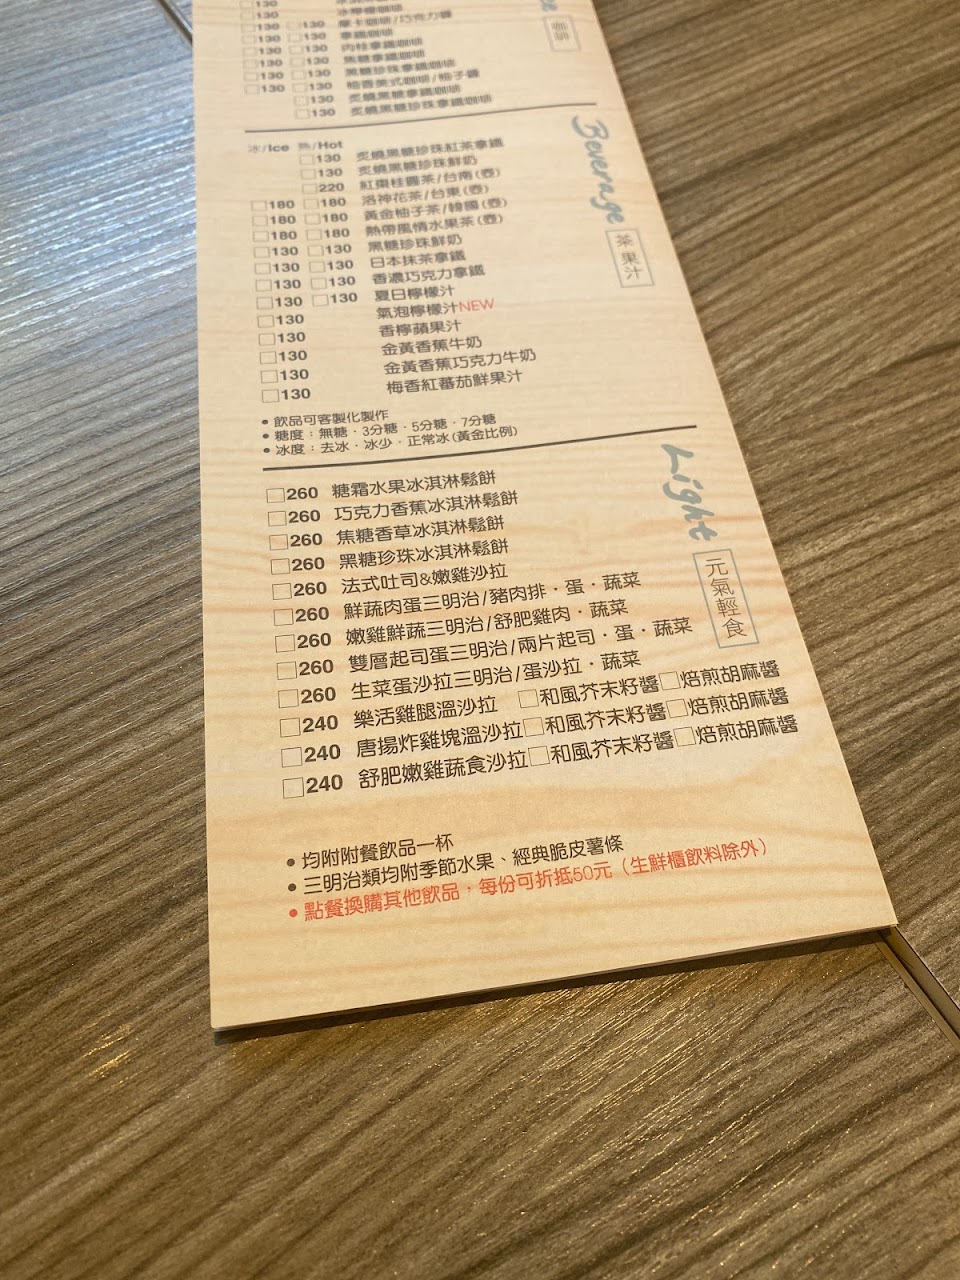 咖啡
□130
□130
□130 □130 摩卡咖啡/巧克力醬
□130 □130 拿鐵咖啡
□130 □130 肉桂拿鐵咖啡
□130 □130 焦糖拿鐵咖啡
□130 □130 黑糖珍珠拿鐵咖啡
□130 □130 柚香美式咖啡/柚子醬
□130 炙燒黑糖拿鐵咖啡
□130 炙燒黑糖珍珠拿鐵咖啡
Beverage 茶果汁
冰/Ice 熱/Hot
□130 炙燒黑糖珍珠紅茶拿鐵
□130 炙燒黑糖珍珠鮮奶
□220 紅棗桂圓茶/台南(壺)
□180 □180 洛神花茶/台東(壺)
□180 □180 黃金柚子茶/韓國(壺)
□180 □180 熱帶風情水果茶(壺)
□130 □130 黑糖珍珠鮮奶
□130 □130 日本抹茶拿鐵
□130 □130 香濃巧克力拿鐵
□130 □130 夏日檸檬汁
□130 氣泡檸檬汁NEW
□130 香檸蘋果汁
□130 金黃香蕉牛奶
□130 金黃香蕉巧克力牛奶
□130 梅香紅蕃茄鮮果汁
• 飲品可客製化製作
• 糖度：無糖．3分糖．5分糖．7分糖
• 冰度：去冰．冰少．正常冰(黃金比例)
Light 元氣輕食
□260 糖霜水果冰淇淋鬆餅
□260 巧克力香蕉冰淇淋鬆餅
□260 焦糖香草冰淇淋鬆餅
□260 黑糖珍珠冰淇淋鬆餅
□260 法式吐司&嫩雞沙拉
□260 鮮蔬肉蛋三明治/豬肉排．蛋．蔬菜
□260 嫩雞鮮蔬三明治/舒肥雞肉．蔬菜
□260 雙層起司蛋三明治/兩片起司．蛋．蔬菜
□260 生菜蛋沙拉三明治/蛋沙拉．蔬菜
□240 樂活雞腿溫沙拉 □和風芥末籽醬□焙煎胡麻醬
□240 唐揚炸雞塊溫沙拉□和風芥末籽醬□焙煎胡麻醬
□240 舒肥嫩雞蔬食沙拉□和風芥末籽醬□焙煎胡麻醬
• 均附附餐飲品一杯
• 三明治類均附季節水果、經典脆皮薯條
• 點餐換購其他飲品，每份可折抵50元（生鮮櫃飲料除外）